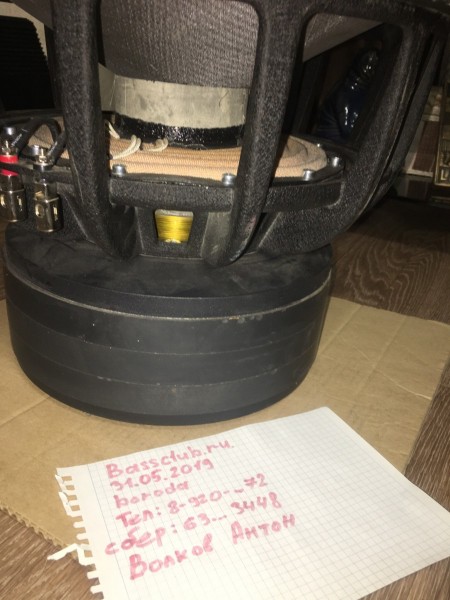 Bassclub.ru.
31.05.2019
boroda
Тел: 8-920-..72
сбер: 63...3448
Волков Антон